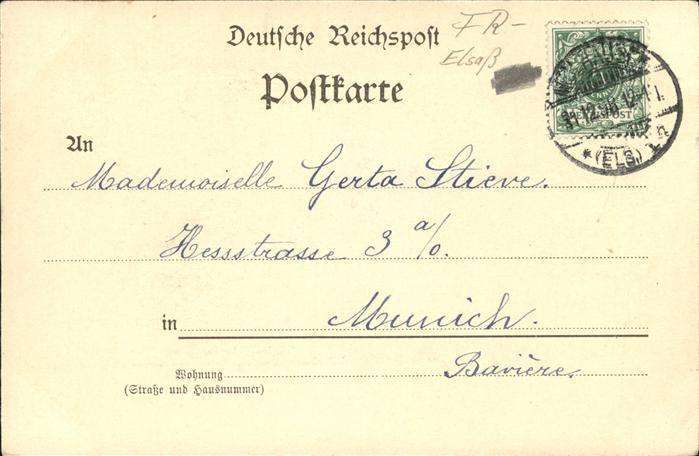 Deutsche Reichspost
FR-
Elsaß
Postkarte
POST
(ELS)
An
Mademoiselle Gerta Stieve.
Hessstrasse 3 a/o.
in Munich.
Bavière.
Wohnung
(Straße und Hausnummer)